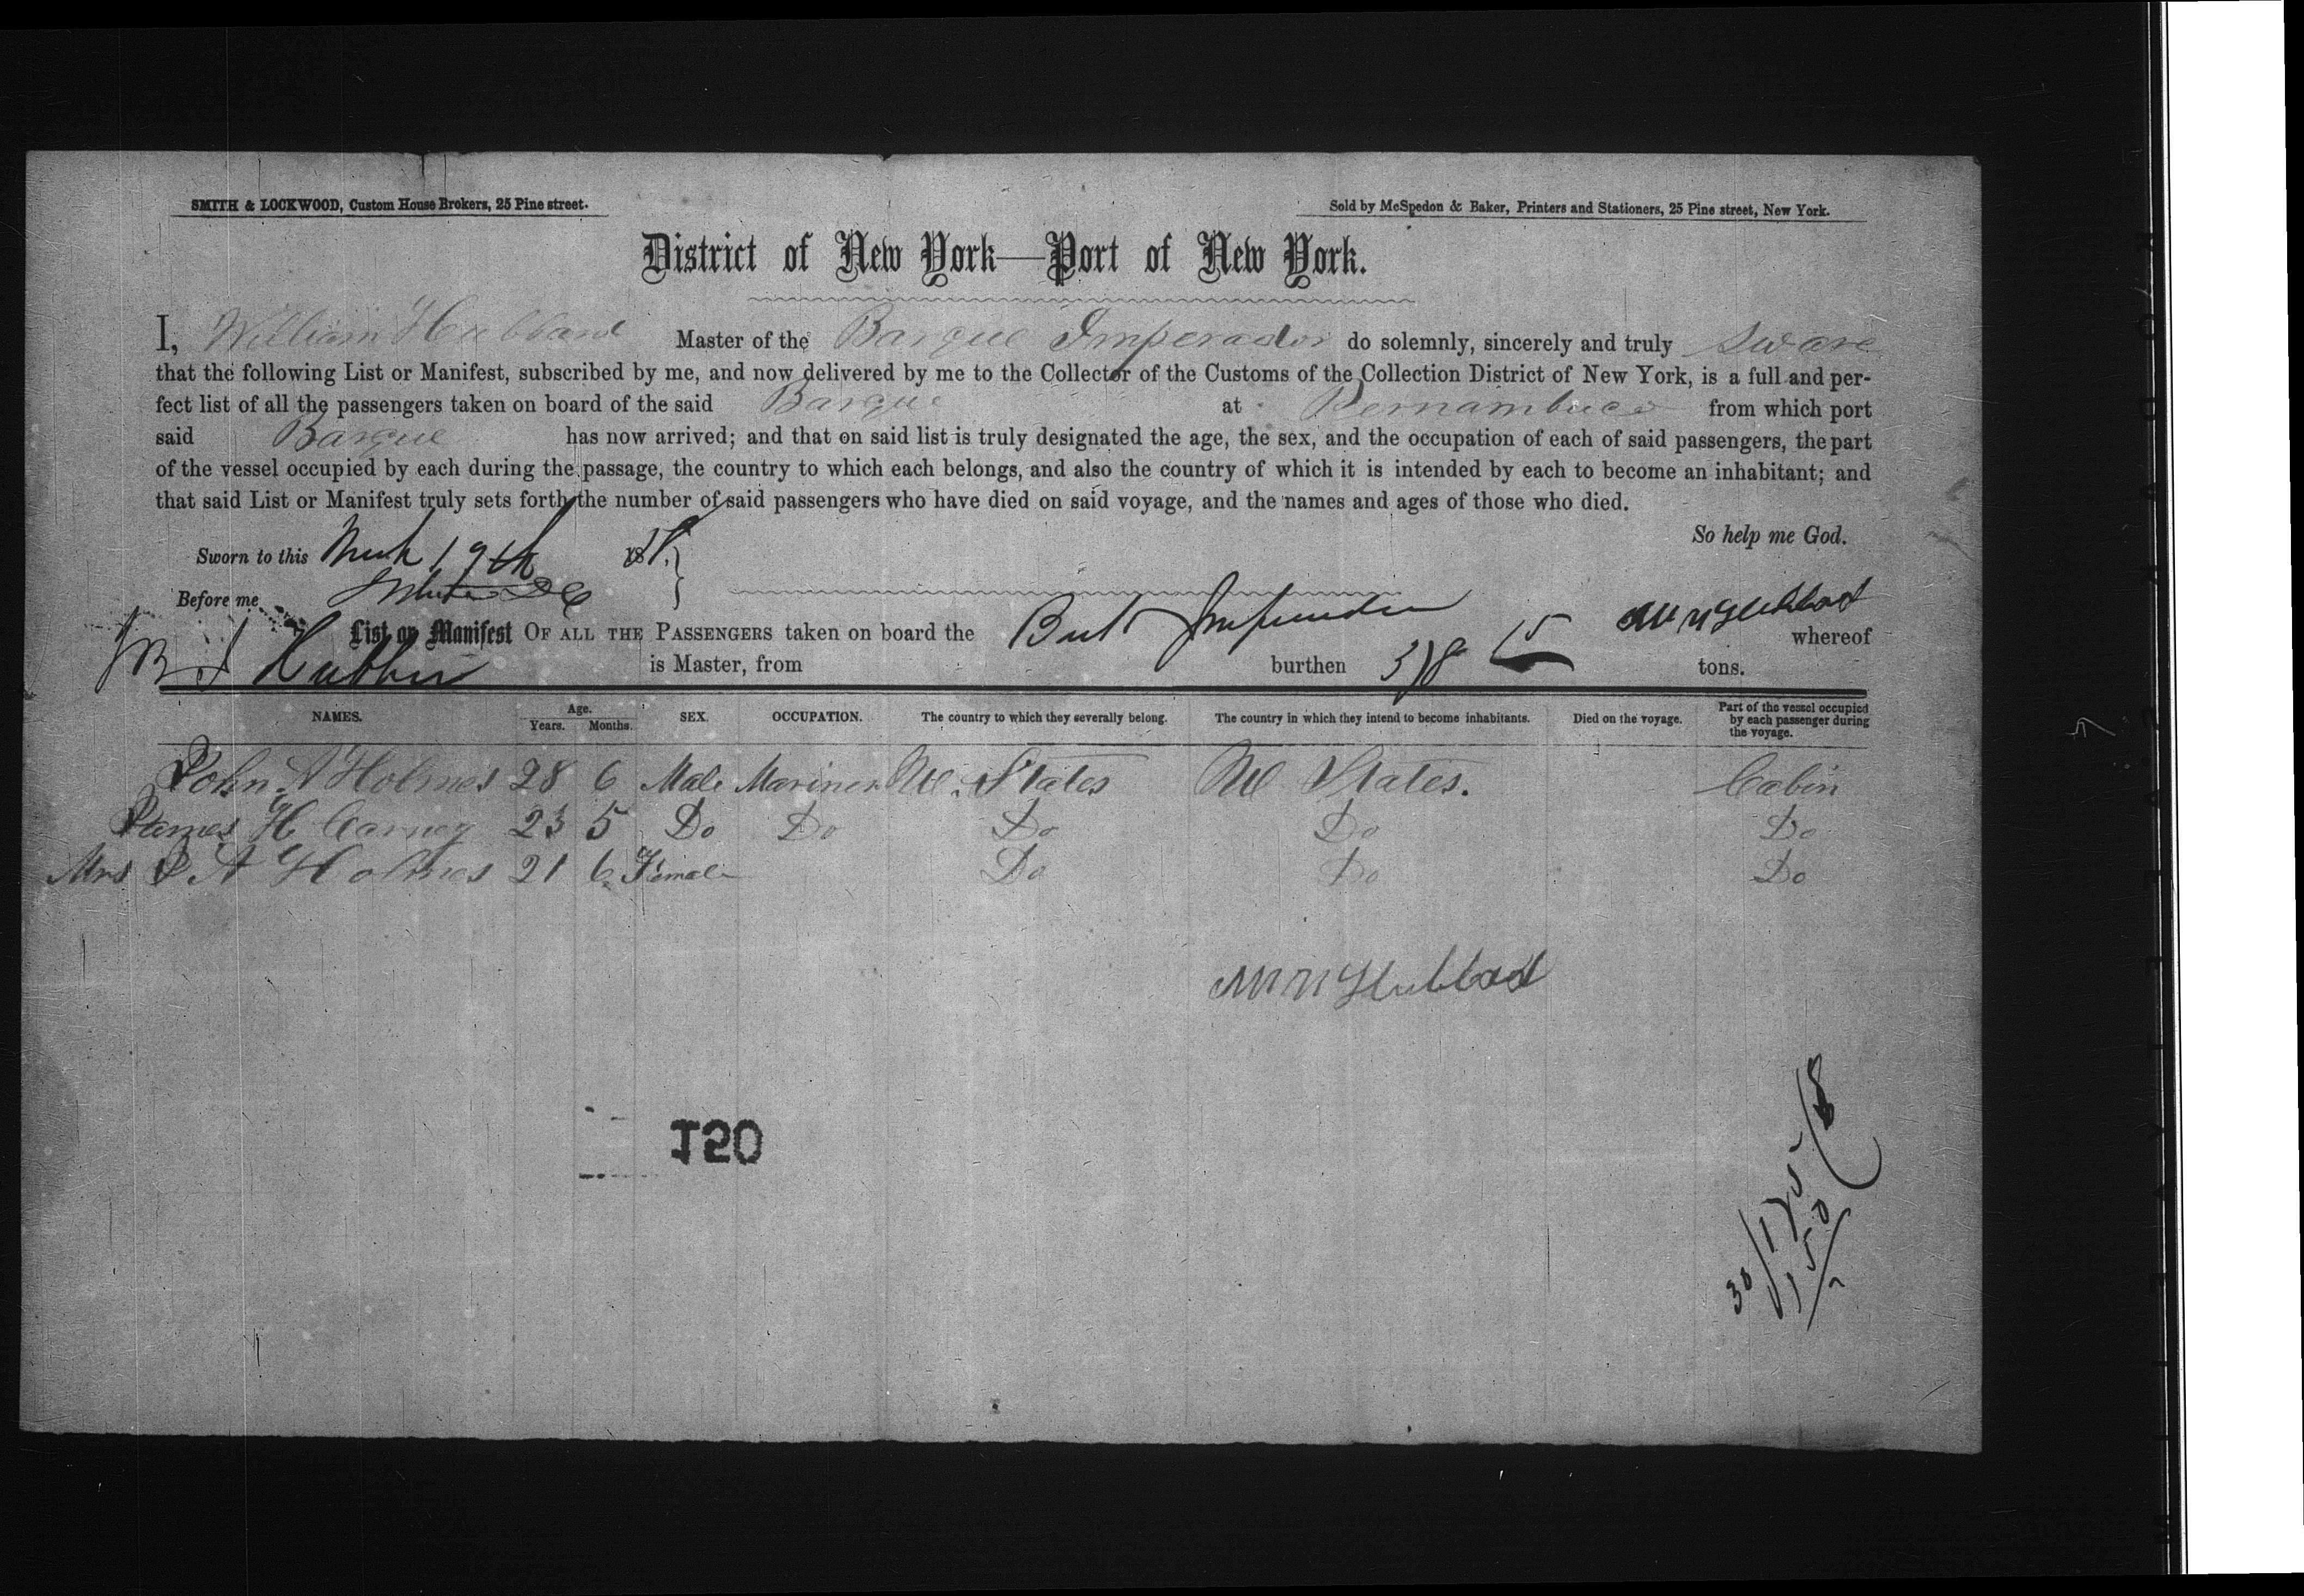 SMITH & LOCKWOOD, Custom House Brokers, 25 Pine street.
Sold by McSpedon & Baker, Printers and Stationers, 25 Pine street, New York.
District of New York—Port of New York.
I, William Hubbard Master of the Barque Imperador do solemnly, sincerely and truly sware
that the following List or Manifest, subscribed by me, and now delivered by me to the Collector of the Customs of the Collection District of New York, is a full and per-
fect list of all the passengers taken on board of the said Barque at Pernambuco from which port
said Barque has now arrived; and that on said list is truly designated the age, the sex, and the occupation of each of said passengers, the part
of the vessel occupied by each during the passage, the country to which each belongs, and also the country of which it is intended by each to become an inhabitant; and
that said List or Manifest truly sets forth the number of said passengers who have died on said voyage, and the names and ages of those who died.
So help me God.
Sworn to this 19th 18
Before me
List or Manifest OF ALL THE PASSENGERS taken on board the whereof
is Master, from burthen tons.
NAMES. Age. Years. Months. SEX. OCCUPATION. The country to which they severally belong. The country in which they intend to become inhabitants. Died on the voyage. Part of the vessel occupied by each passenger during the voyage.
John A Holmes 28 6 Male Mariner U. States U States. Cabin
James H Carney 23 5 Do Do Do Do Do
Mrs J A Holmes 21 6 Female Do Do Do
Wm H Hubbard
150